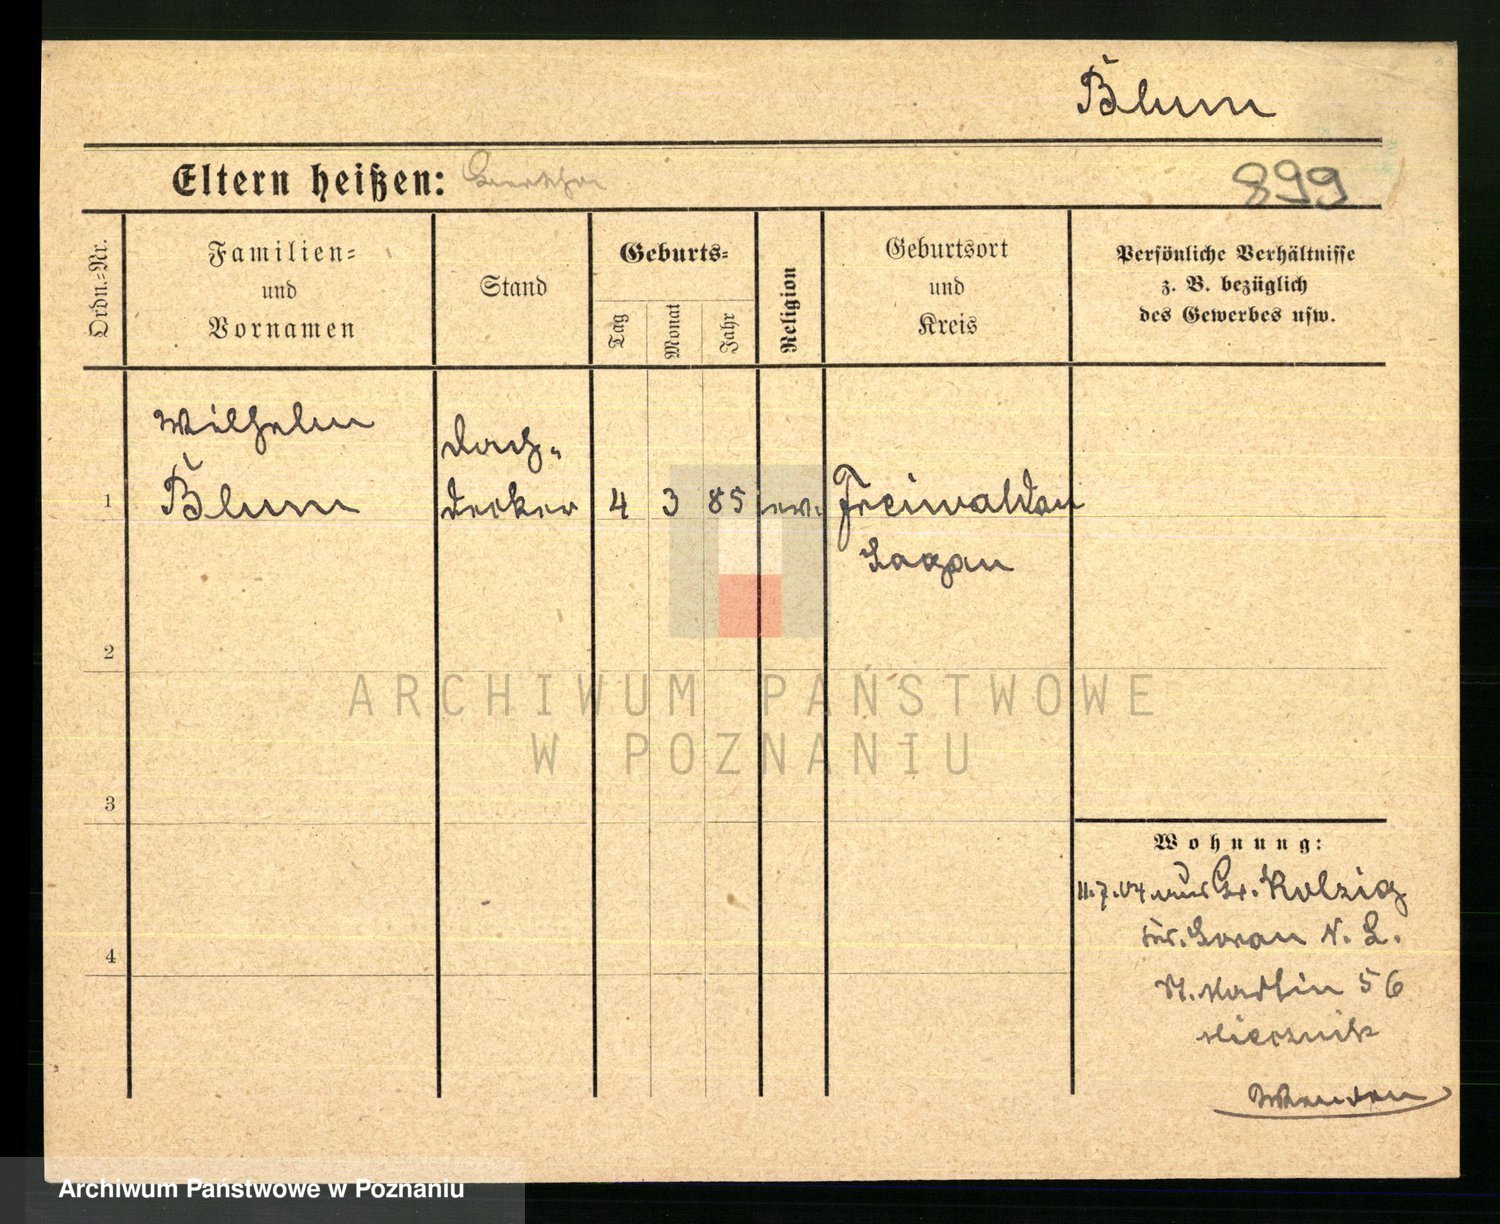 Blum
Eltern heißen:
899
Ordn.-Nr.
Familien-
und
Vornamen
Stand
Geburts-
Tag
Monat
Jahr
Religion
Geburtsort
und
Kreis
Persönliche Verhältnisse
z. B. bezüglich
des Gewerbes usw.
Wilhelm
Blum
Dach-
decker
1
4
3
85
ev.
Freiwaldau
Sagan
2
3
4
Wohnung:
11.7.04 aus Gr. Kolzig
Kr. Sorau N. L.
St. Martin 56
Miecznik
Wenden
ARCHIWUM PAŃSTWOWE
W POZNANIU
Archiwum Państwowe w Poznaniu